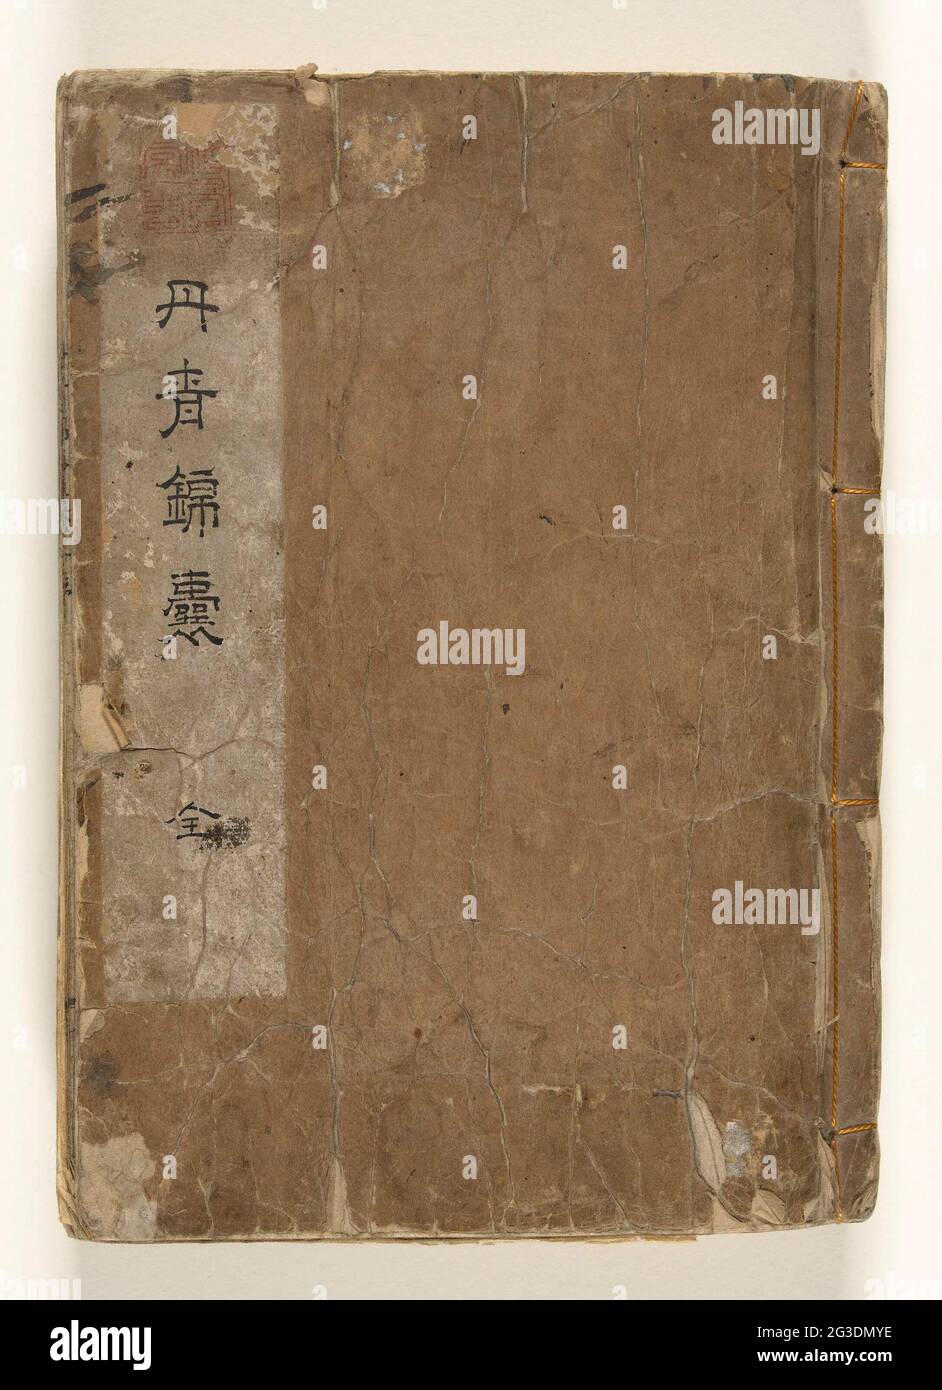 丹青錦囊
全
alamy
alamy
alamy
alamy
Image ID: 2G3DMYE
www.alamy.com